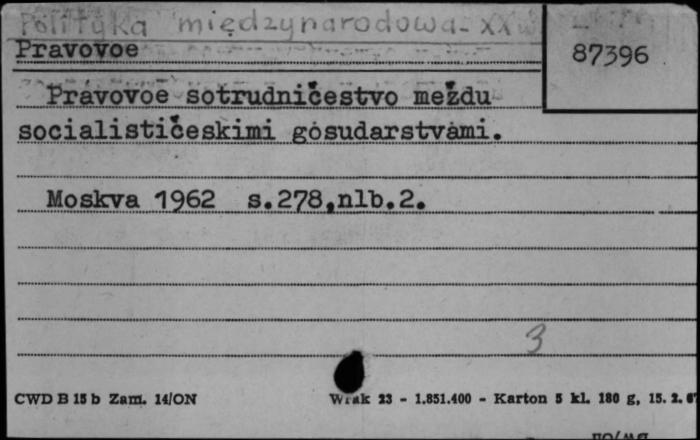 Polityka międzynarodowa - XX w
87396
Pravovoe
Pravovoe sotrudničestvo meždu
socialističeskimi gosudarstvami.
Moskva 1962 s.278,nlb.2.
3
CWD B 15 b Zam. 14/ON
Wrak 23 - 1.851.400 - Karton 5 kl. 180 g, 15. 2.